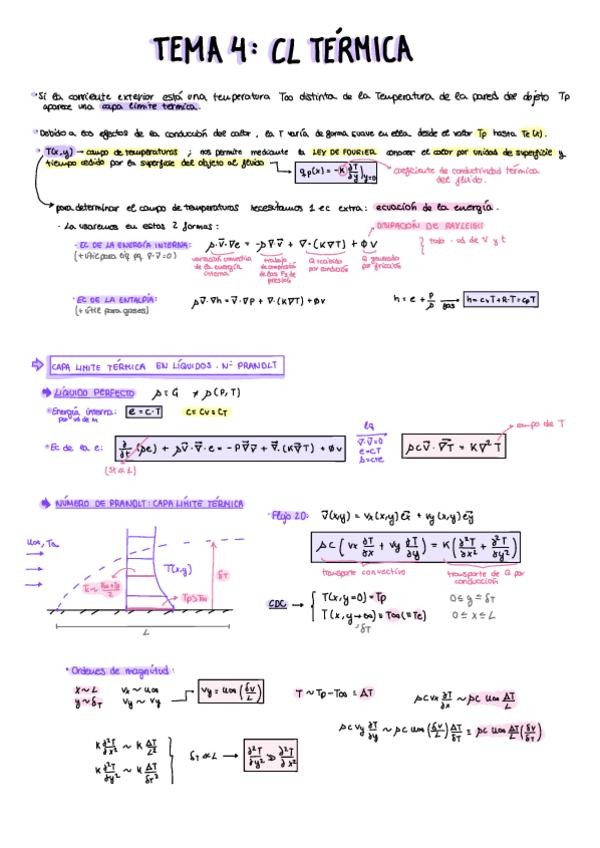 TEMA 4: CL TÉRMICA
· Si la corriente exterior está una temperatura T∞ distinta de la Temperatura de la pared del objeto Tp
aparece una capa límite térmica.
· Debido a los efectos de la conducción del calor, la T varía de forma suave en ella desde el valor Tp hasta Te(x).
· T(x,y) → campo de temperaturas ; nos permite mediante la LEY DE FOURIER conocer el calor por unidad de superficie y
tiempo cedido por la superficie del objeto al fluido → qp(x) = -K ∂T/∂y|y=0
coeficiente de conductividad térmica
del fluido.
para determinar el campo de temperaturas necesitamos 1 ec extra: ecuación de la energía.
- La usaremos en estas 2 formas:
DISIPACIÓN DE RAYLEIGH
· EC DE LA ENERGÍA INTERNA:
(+ útil para líq pq ∇·v̄=0)
ρ·v̄·∇e = -p∇v̄ + ∇·(K∇T) + φv
} todo · ud de V y t
variación convectiva
de la energía
interna
trabajo
de compresión
de las Fz de
presión
Q recibido
por conducción
Q generado
por fricción
· EC DE LA ENTALPÍA:
(+ útil para gases)
ρv̄·∇h = v̄·∇p + ∇·(K∇T) + φv
h = e + p/ρ gas h = cvT + R·T = cpT
⇒ CAPA LIMITE TÉRMICA EN LÍQUIDOS. Nº PRANDLT
LÍQUIDO PERFECTO ρ = G ≠ ρ(P,T)
· Energía interna: e = c·T c = cv = cT
por ud de m
· Ec de la e: ∂/∂t (ρe) + ρv̄·∇·e = -p∇v̄ + ∇·(K∇T) + φv
(St≪1)
líq
∇·v̄=0
e=cT
ρ=cte
ρc v̄·∇T = K∇²T
campo de T
NÚMERO DE PRANDLT: CAPA LÍMITE TÉRMICA
u∞, T∞
T(x,y)
δT
Tp>T∞
L
· Flujo 2D: v̄(x,y) = vx(x,y)ex + vy(x,y)ey
ρc ( vx ∂T/∂x + vy ∂T/∂y ) = K ( ∂²T/∂x² + ∂²T/∂y² )
transporte convectivo
transporte de Q por
conducción
CDC → { T(x,y=0) = Tp 0≤y≤δT
T(x,y→∞) = T∞(=Te) 0≤x≤L
~δT
· Ordenes de magnitud:
x ~ L vx ~ u∞
y ~ δT vy ~ vy
vy = u∞ (δv/L)
T ~ Tp-T∞ = ΔT
ρc vx ∂T/∂x ~ ρc u∞ ΔT/L
ρc vy ∂T/∂y ~ ρc u∞ (δv/L) ΔT/δT = ρc u∞ ΔT/L (δv/δT)
K ∂²T/∂x² ~ K ΔT/L²
K ∂²T/∂y² ~ K ΔT/δT²
δT ≪ L → ∂²T/∂y² ≫ ∂²T/∂x²